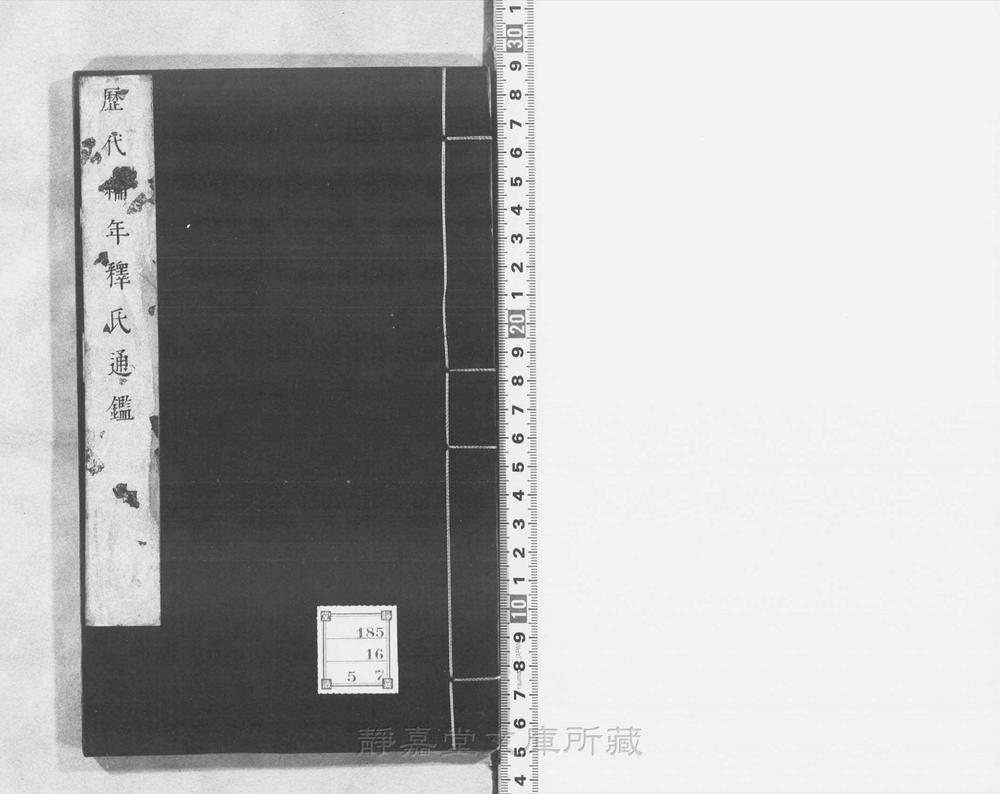 歷代編年釋氏通鑑
185
16
5 7
靜嘉堂文庫所藏
1
30
9
8
7
6
5
4
3
2
1
20
9
8
7
6
5
4
3
2
1
10
9
8
7
6
5
4